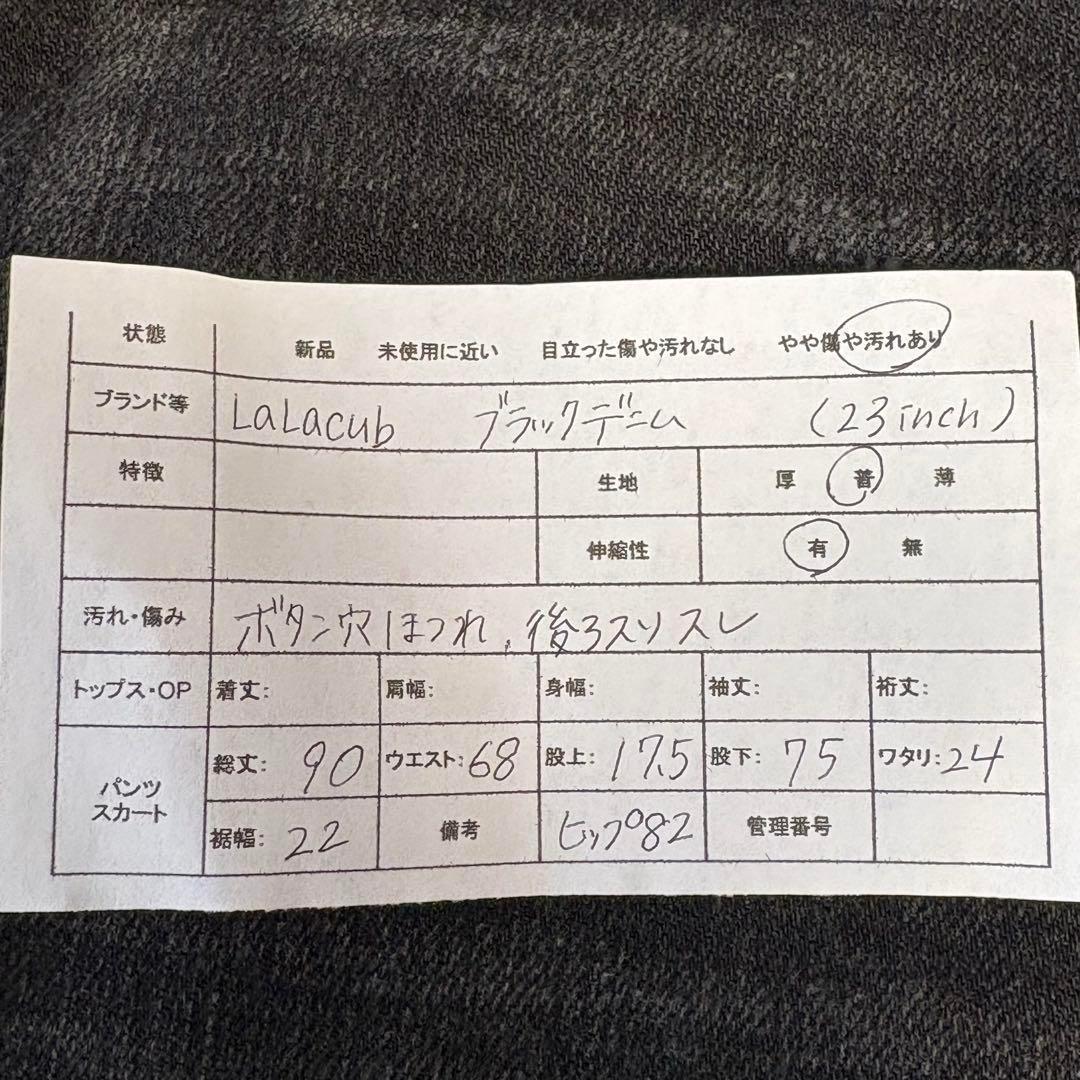 状態 新品 未使用に近い 目立った傷や汚れなし やや傷や汚れあり
ブランド等 LaLacub ブラックデニム (23inch)
特徴 生地 厚 普 薄
伸縮性 有 無
汚れ・傷み ボタン穴ほつれ、後ろスソスレ
トップス・OP 着丈: 肩幅: 身幅: 袖丈: 裄丈:
パンツ スカート 総丈: 90 ウエスト: 68 股上: 17.5 股下: 75 ワタリ: 24
裾幅: 22 備考 ヒップ82 管理番号